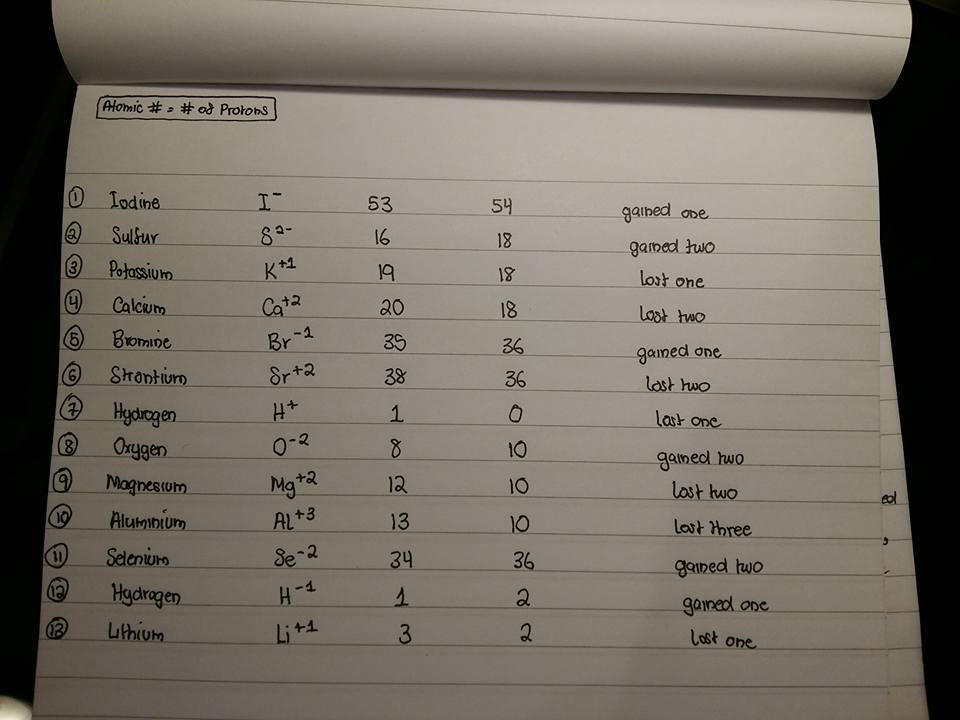 Atomic # = # of Protons
① Iodine I⁻ 53 54 gained one
② Sulfur S²⁻ 16 18 gained two
③ Potassium K⁺¹ 19 18 lost one
④ Calcium Ca⁺² 20 18 lost two
⑤ Bromine Br⁻¹ 35 36 gained one
⑥ Strontium Sr⁺² 38 36 lost two
⑦ Hydrogen H⁺ 1 0 lost one
⑧ Oxygen O⁻² 8 10 gained two
⑨ Magnesium Mg⁺² 12 10 lost two
⑩ Aluminium Al⁺³ 13 10 lost three
⑪ Selenium Se⁻² 34 36 gained two
⑫ Hydrogen H⁻¹ 1 2 gained one
⑬ Lithium Li⁺¹ 3 2 lost one